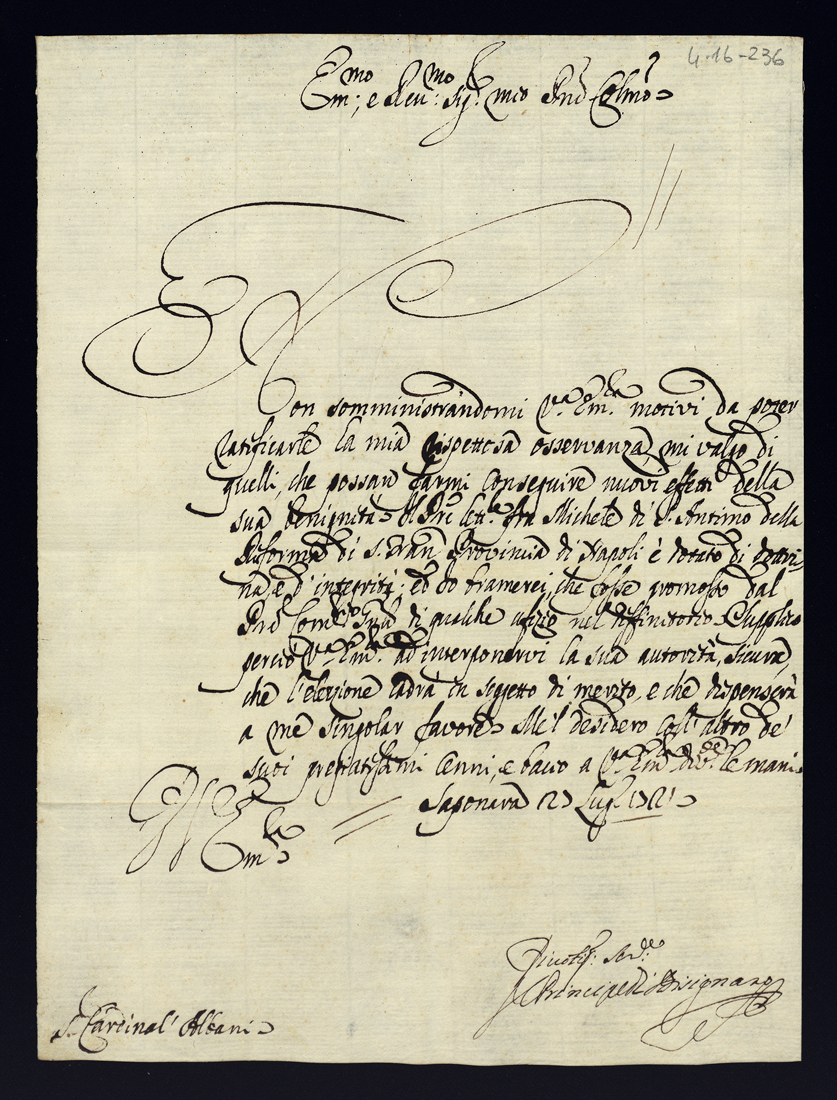 4-16-236
Em:mo e Reu:mo Sig:r mio Pnē Colmo
Non somministrandomi V.a Em.za motivi da poter
ratificarle la mia rispettosa osservanza, mi valgo di
quelli, che possan farmi conseguire nuovi effetti della
sua benignità. Il Prē Lett.e fra Michele di S. Antimo della
Riforma di S. Fran. Provincia di Napoli è dotato di dottri-
na, e d'integrità; ed io bramerei, che fosse promosso dal
Prē Com.rio Gnāl di qualche ufizio nel diffinitorio. Supplico
perciò V.a Em.za ad interponervi la sua autorità, sicura,
che l'elezione cadrà in sogetto di merito, e che dispenserà
a me singolar favore. Me'l desidero coll'altro de'
suoi pregiatissimi cenni, e bacio a V.a Em.za le mani.
Saponara 27 Lug.
Em.za
Divotiss: Ser.re
Principe di Bisignano
S. Cardinal' Albani